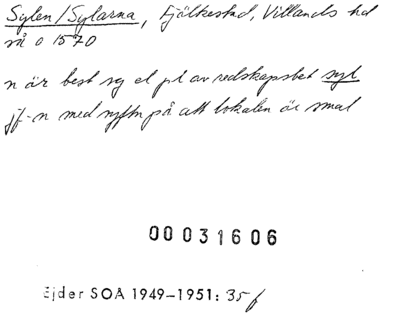 Sylen/Sylarna, Fjälkestad, Villands hd
nå o 1570
n är best sg el pl av redskapsbet syl
jf-n med syftn på att lokalen är smal
00031606
Ejder SOÅ 1949-1951: 35 f